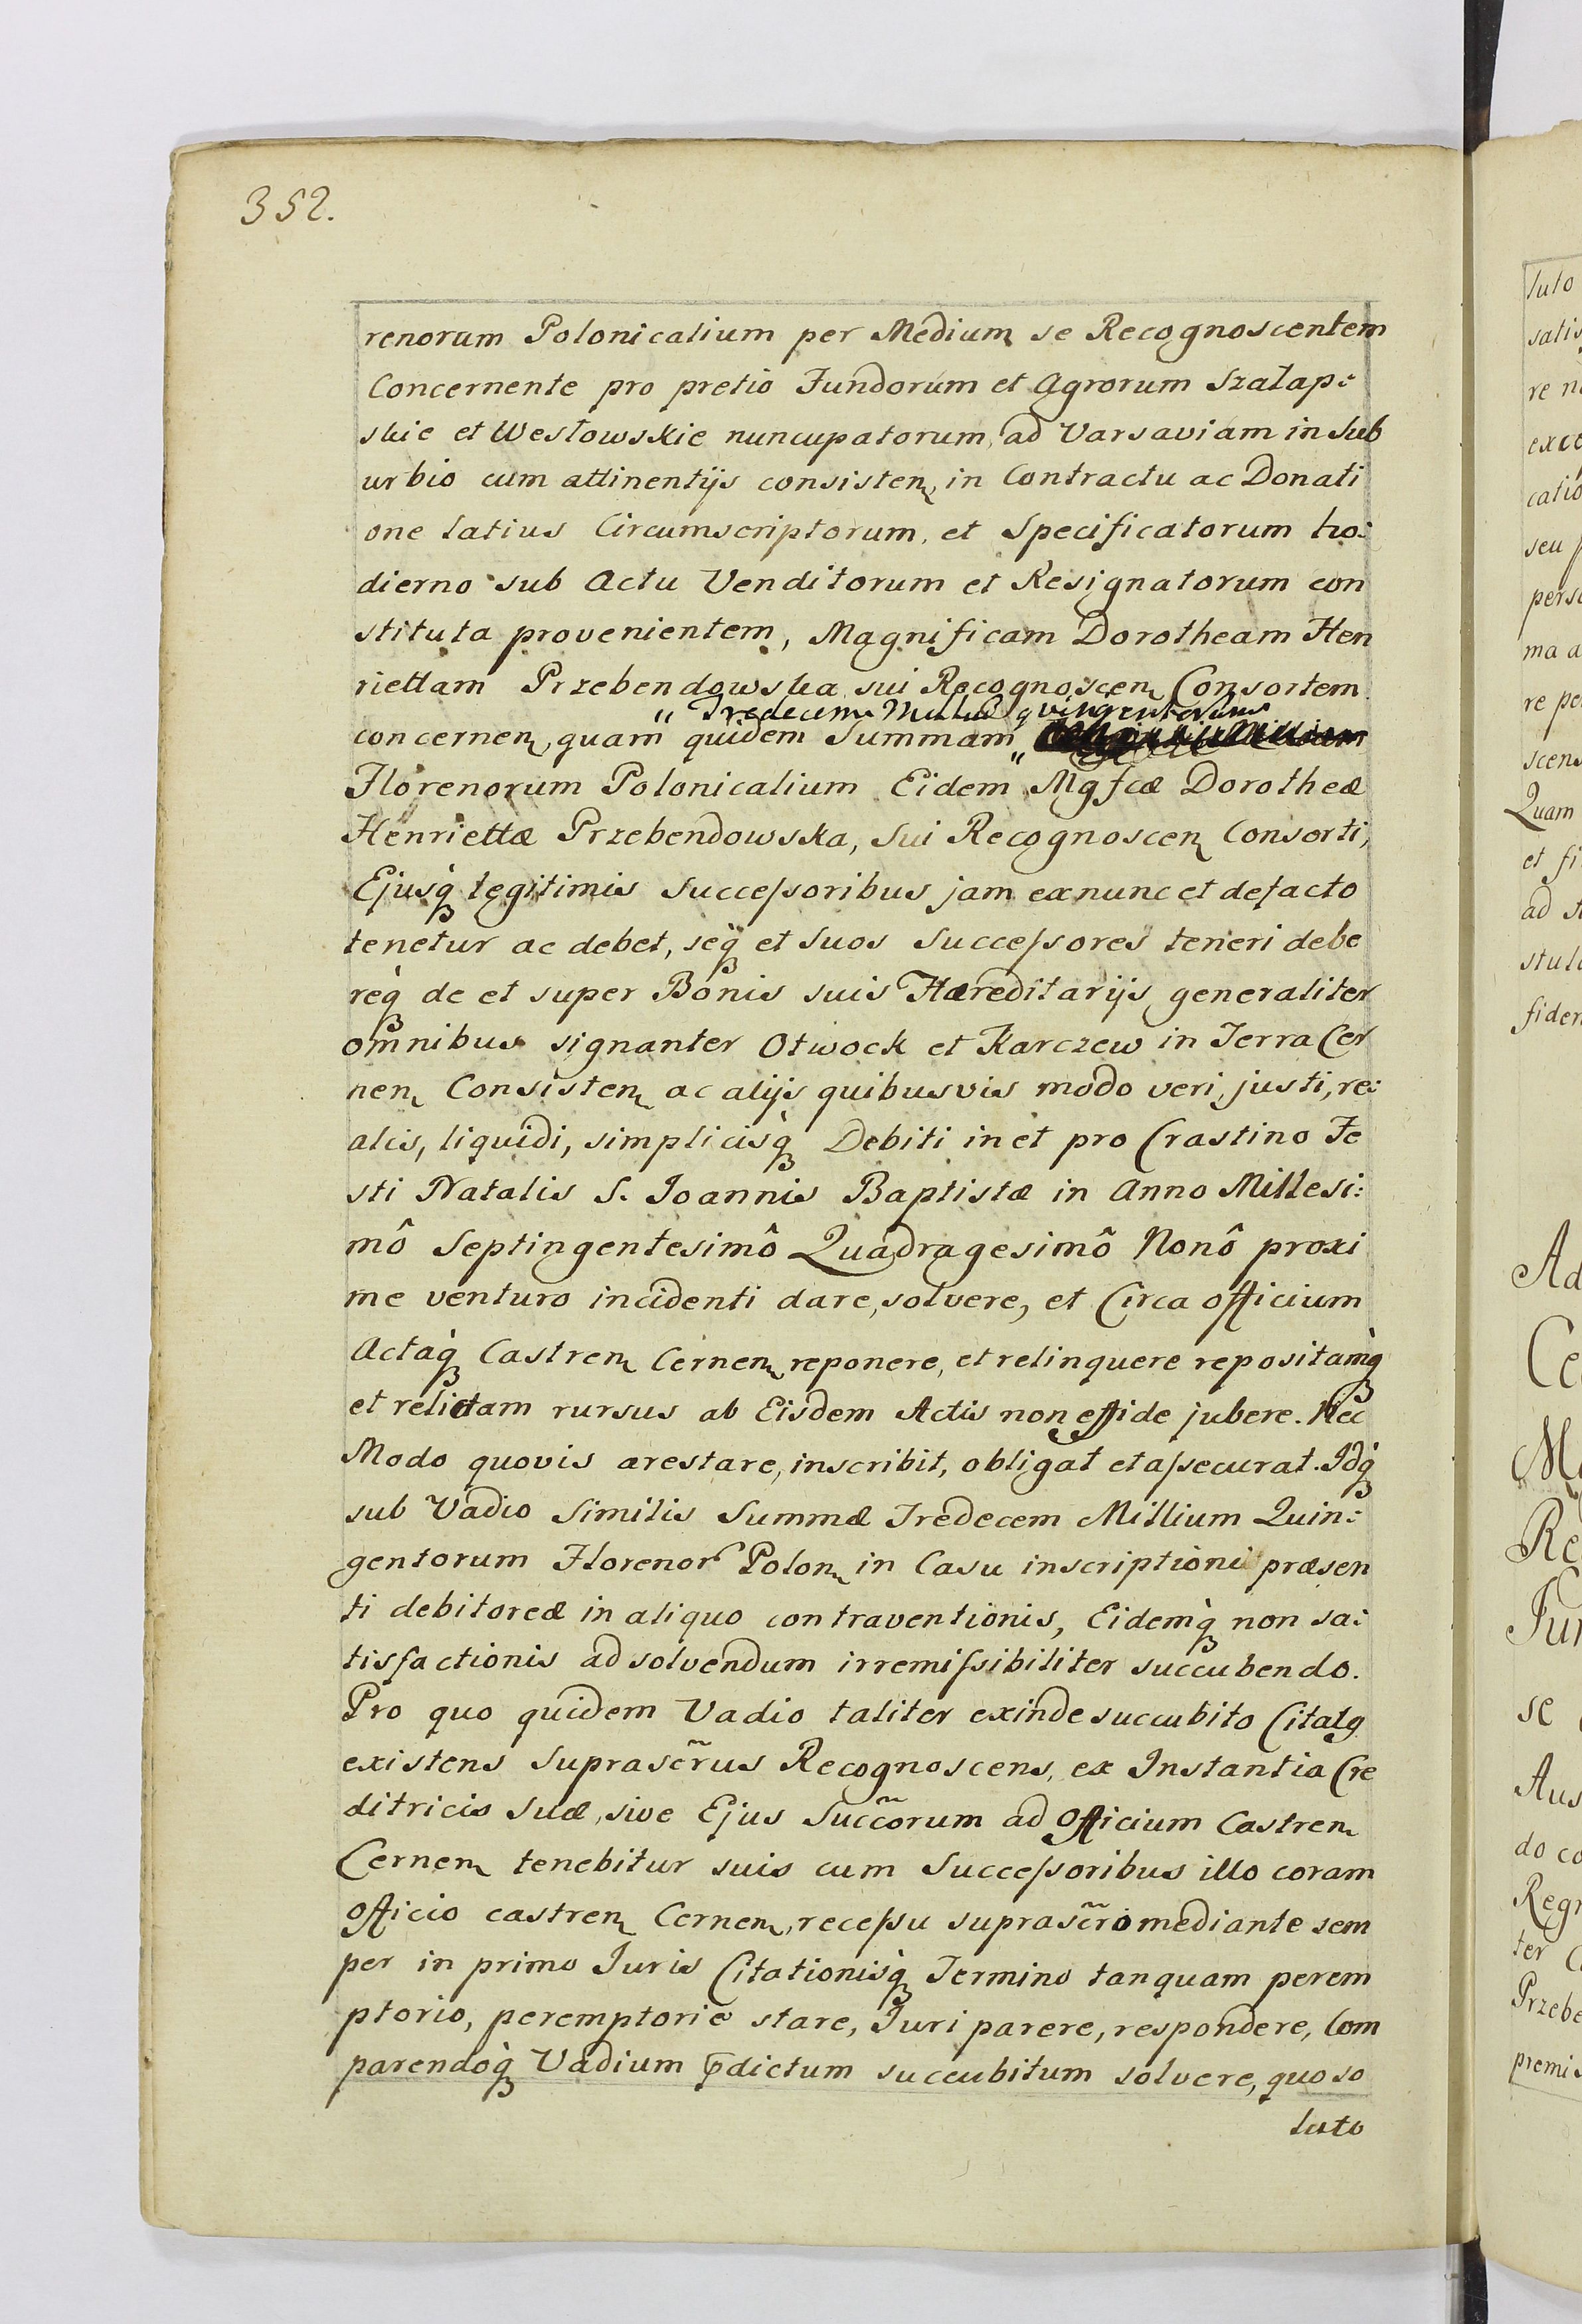 352.
renorum Polonicalium per Medium se Recognoscentem
Concernente pro pretio Fundorum et Agrorum Szałap:
skie et Wesłowskie nuncupatorum, ad Varsaviam in Sub
urbio cum attinentijs consisten, in Contractu ac Donati
one latius Circumscriptorum, et Specificatorum ho:
dierno sub Actu Venditorum et Resignatorum con
stituta provenientem, Magnificam Dorotheam Hen
riettam Przebendowska sui Recognoscen Consortem
" Tredecem Millium quingentorum
concernen, quam quidem Summam "
Florenorum Polonicalium Eidem Mgfcæ Dorotheæ
Henriettæ Przebendowska, Sui Recognoscen Consorti,
Ejusq̀ legitimis Succeſsoribus jam exnunc et defacto
tenetur ac debet, seq̀ et Suos Succeſsores teneri debe
req̀ de et super Bonis suis Hæreditarijs generaliter
omnibus signanter Otwock et Karczew in Terra Cer
nen Consisten ac alijs quibusvis modo veri, justi, re:
alis, liquidi, simplicisq̀ Debiti in et pro Crastino Fe
sti Natalis S. Joannis Baptistæ in Anno Millesi:
mô Septingentesimô Quadragesimô Nonô proxi
me venturo incidenti dare, solvere, et Circa officium
Actaq̀ Castren Cernen reponere, et relinquere repositamq̀
et relictam rursus ab Eisdem Actis non effide jubere. Nec
Modo quovis arestare, inscribit, obligat et aſsecurat. Idq̀
sub Vadio Similis Summæ Tredecem Millium Quin:
gentorum Florenor Polon in Casu inscriptioni præsen
ti debitoreæ in aliquo contraventionis, Eidemq̀ non sa:
tisfactionis ad solvendum irremiſsibiliter succubendo.
Pro quo quidem Vadio taliter exinde succubito Citatg
existens Suprascr̃us Recognoscens, ex Instantia Cre
ditricis Suæ, sive Ejus Succ̃orum ad Officium Castren
Cernen tenebitur suis cum Succeſsoribus illo coram
Officio castren Cernen, receſsu suprascr̃o mediante sem
per in primo Juris Citationisq̀ Termino tanquam perem
ptorio, peremptorie stare, Juri parere, respondere, Com
parendoq̀ Vadium p̄dictum succubitum solvere, quo so
luto
luto
satis
re n
exce
catio
seu
perso
ma a
re po
scens
Quam
et fi
ad
stul
fiden
Ad
Ce
M
Re
Jur
se
Aus
do co
Regn
ter
Przebe
premis